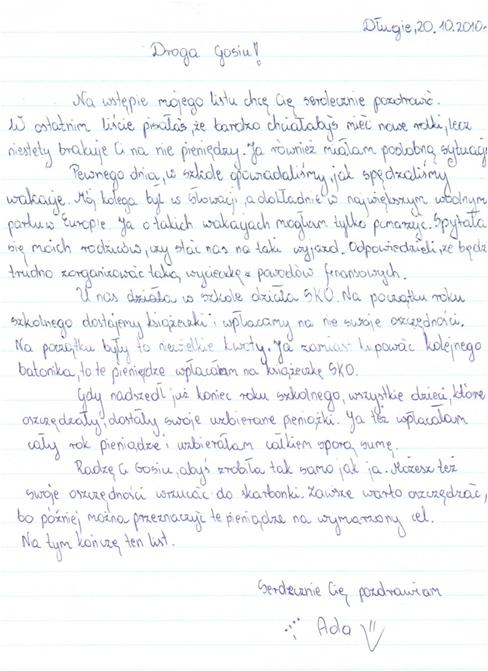 Długie, 20.10.2010r.
Droga Gosiu!
Na wstępie mojego listu chcę Cię serdecznie pozdrowić.
W ostatnim liście pisałaś, że bardzo chciałabyś mieć nowe rolki, lecz
niestety brakuje Ci na nie pieniędzy. Ja również miałam podobną sytuację
Pewnego dnia, w szkole opowiadaliśmy, jak spędzaliśmy
wakacje. Mój kolega był w Słowacji, a dokładnie w największym wodnym
parku w Europie. Ja o takich wakacjach mogłam tylko pomarzyć. Spytałam
się moich rodziców, czy stać nas na taki wyjazd. Odpowiedzieli, że będzie
trudno zorganizować taką wycieczkę z powodów finansowych.
U nas działa w szkole działa SKO. Na początku roku
szkolnego dostajemy książeczki i wpłacamy na nie swoje oszczędności.
Na początku były to niewielkie kwoty. Ja zamiast kupować kolejnego
batonika, to te pieniądze wpłacałam na książeczkę SKO.
Gdy nadszedł już koniec roku szkolnego, wszystkie dzieci, które
oszczędzały, dostały swoje uzbierane pieniążki. Ja też wpłacałam
cały rok pieniądze i uzbierałam całkiem sporą sumę.
Radzę Ci Gosiu, abyś zrobiła tak samo jak ja. Możesz też
swoje oszczędności wrzucać do skarbonki. Zawsze warto oszczędzać,
bo później można przeznaczyć te pieniądze na wymarzony cel.
Na tym kończę ten list.
Serdecznie Cię pozdrawiam
Ada